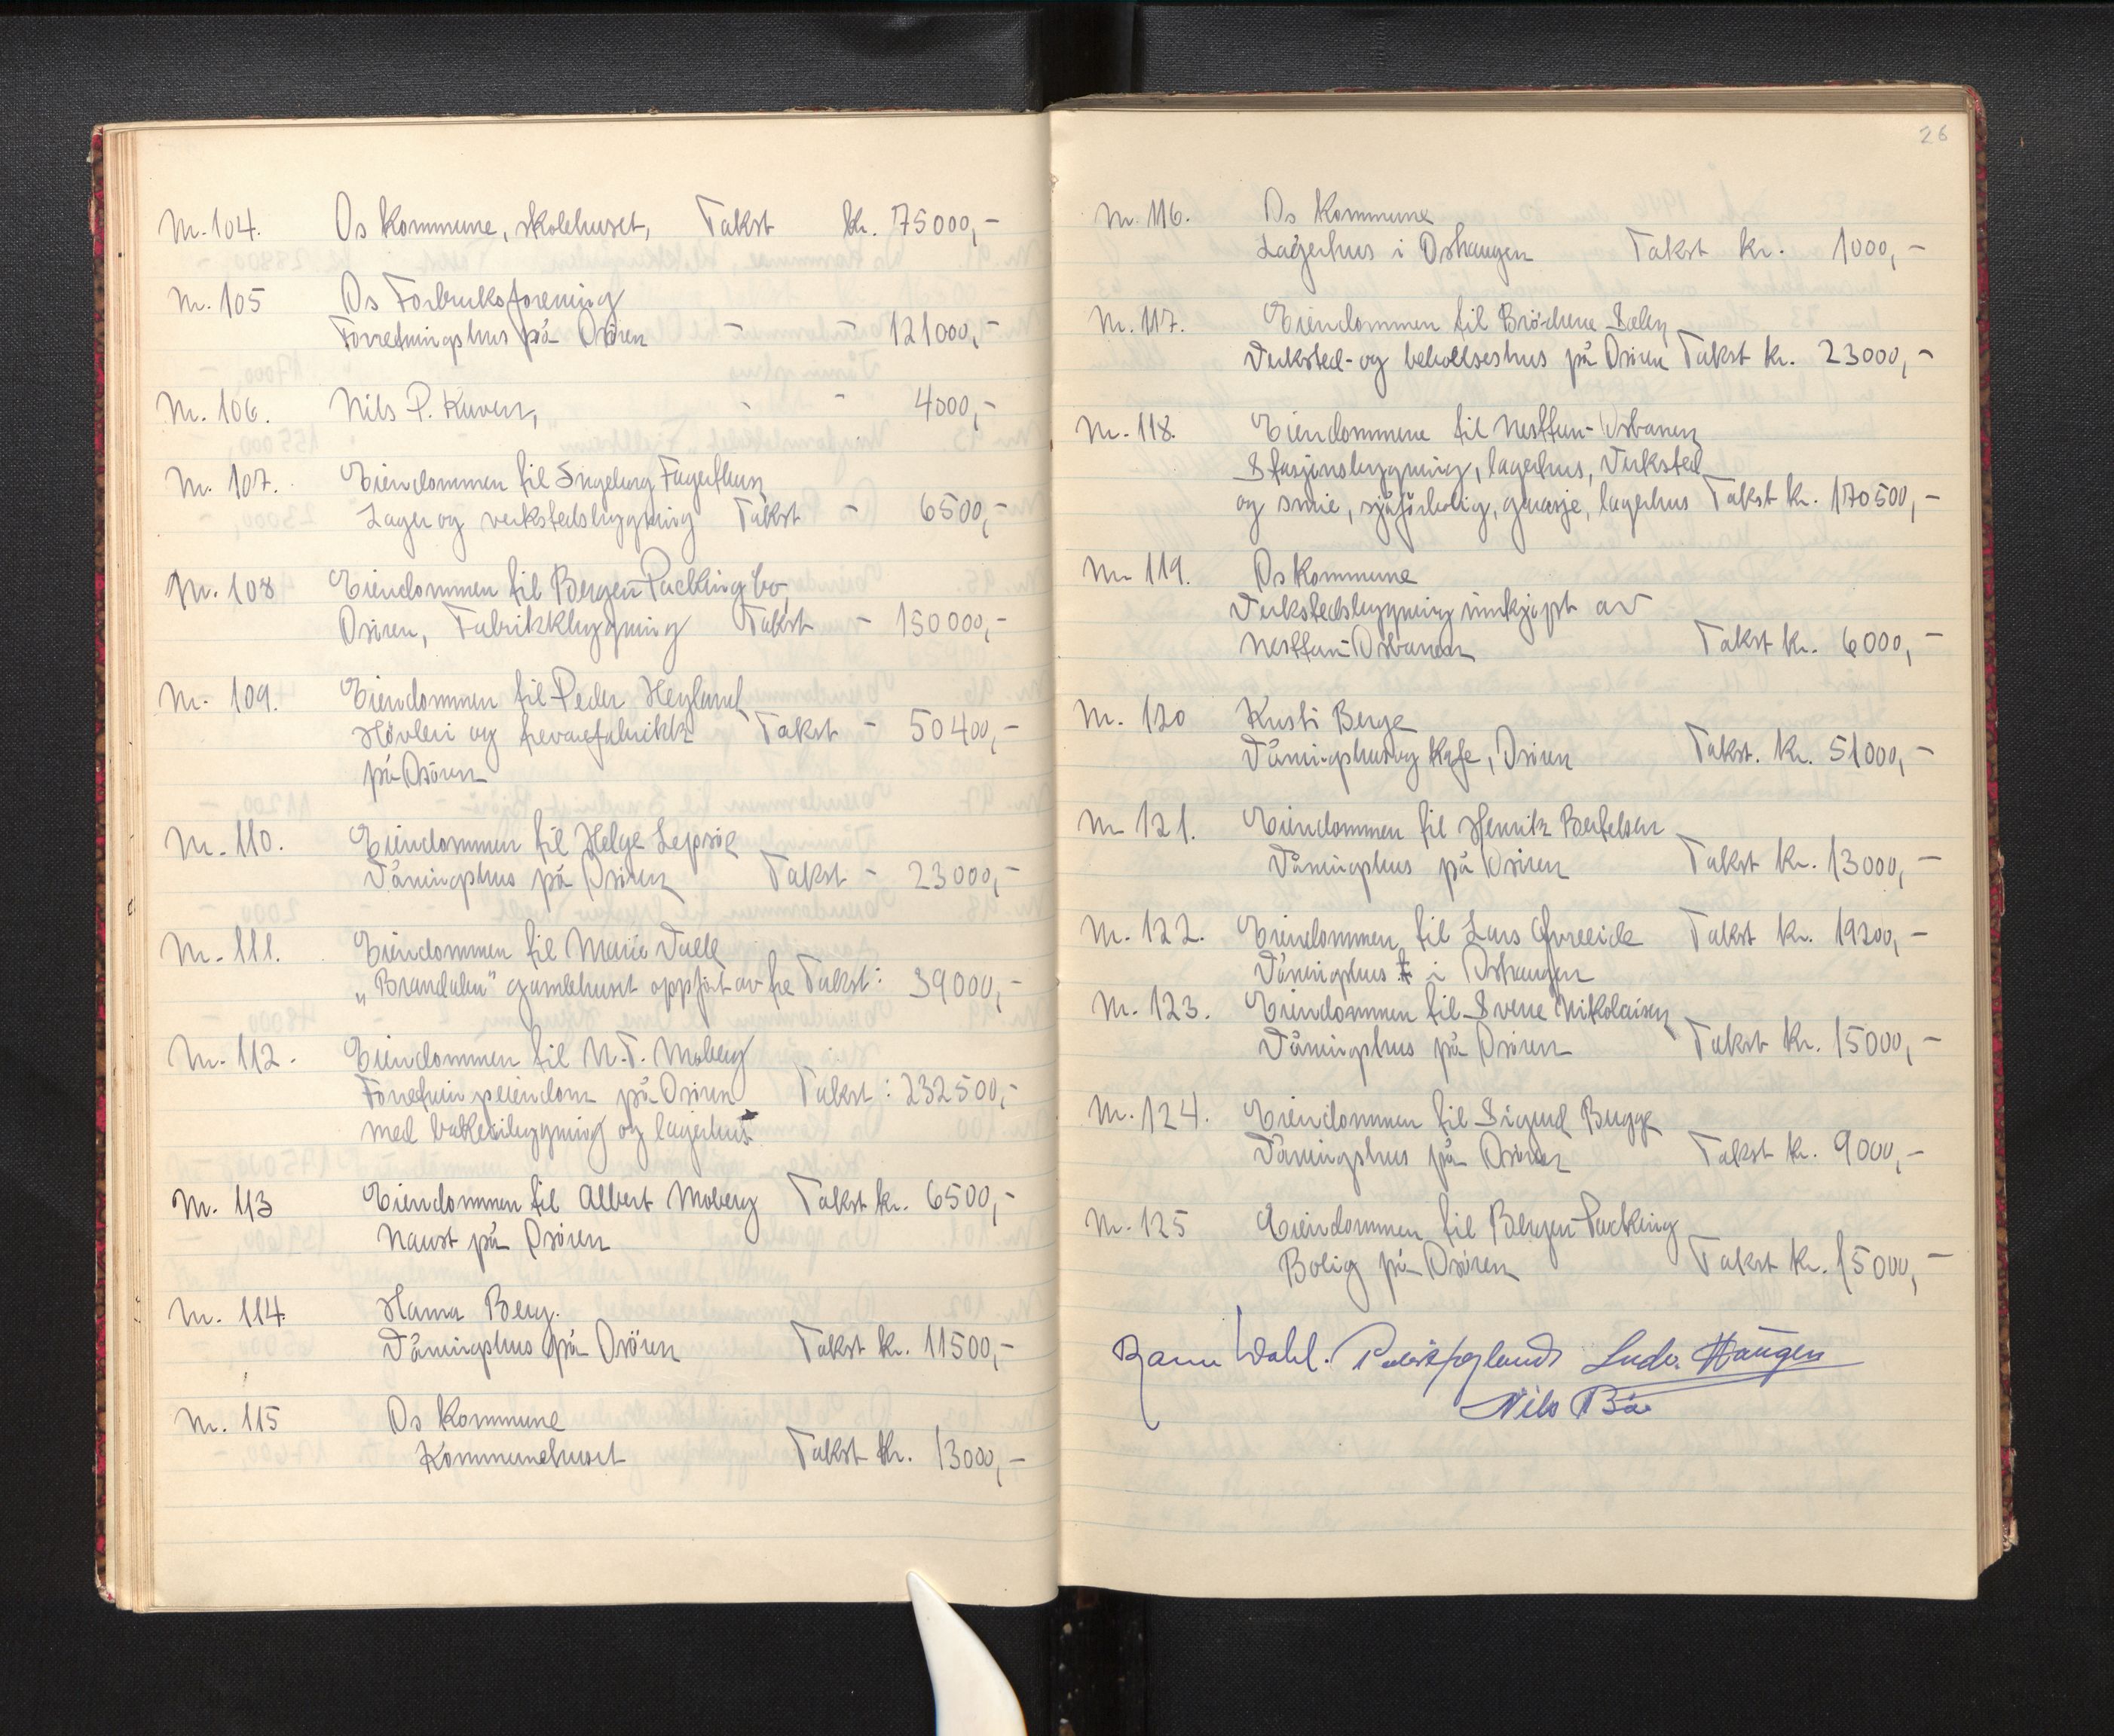 Nr. 104. Os Kommune, skolehuset, Takst kr. 75000,-
Nr. 105 Os Forbruksforening
Forretningshus på Osören - - 121000,-
Nr. 106. Nils P. Kuven, - - 4000,-
Nr. 107. Eiendommen til Ingeborg Fagerthun
Lager og verkstedsbyggning Takst - 6500,-
Nr. 108 Eiendommen til Bergen Packing Co
Osören, Fabrikkbyggning Takst - 150000,-
Nr. 109. Eiendommen til Peder Hegland
Hövleri og trevarefabrikk Takst - 50400,-
på Osören
Nr. 110. Eiendommen til Helge Lepsöe
Våningshus på Osören Takst - 23000,-
Nr. 111. Eiendommen til Marie Valle
"Brandalen" gamlehuset oppfört av tre Takst: 39000,-
Nr. 112. Eiendommen til N. T. Moberg
Forretningseiendom på Osören Takst: 232500,-
med bakeribyggning og lagerhus
Nr. 113 Eiendommen til Albert Moberg Takst kr. 6500,-
Naust på Osören
Nr. 114. Hanna Berg.
Våningshus på Osören Takst kr. 11500,-
Nr. 115 Os Kommune
Kommunehuset Takst kr. 13000,-
26
Nr. 116. Os Kommune
Lagerhus i Oshaugen Takst kr. 1000,-
Nr. 117. Eiendommen til Brödrene Sælen
Verksted- og beboelseshus på Osören Takst kr. 23000,-
Nr. 118. Eiendommene til Nesttun-Osbanen
Stasjonsbyggning, lagerhus, Verksted
og smie, sjåförbolig, garasje, lagerhus Takst kr. 170500,-
Nr. 119. Os Kommune
Verkstedsbyggning innkjöpt av
Nesttun-Osbanen Takst kr. 6000,-
Nr. 120 Kristi Berge
Våningshus og Kafe, Osören Takst. kr. 51000,-
Nr. 121. Eiendommen til Henrik Bertelsen
Våningshus på Osören Takst kr. 13000,-
Nr. 122. Eiendommen til Lars Øvreeide Takst kr. 19200,-
Våningshus i Oshaugen
Nr. 123. Eiendommen til Sverre Nikolaisen
Våningshus på Osören Takst kr. 15000,-
Nr. 124. Eiendommen til Sigurd Bugge
Våningshus på Osören Takst kr. 9000,-
Nr. 125 Eiendommen til Bergen Packing
Bolig på Osören Takst kr. 15000,-
Wahl. Ludv. Haugen
Nils Bö